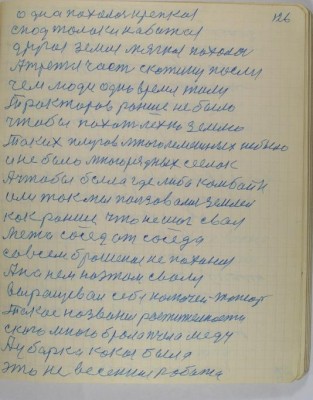 126
одна пахалася крепкая
с под толоки и кабажка
другая земля мягкая пахалас
А трети част скотину пасли
чем люди одно время жили
Тракторов раньше не было
чтобы пахат лехко землю
Таких плугов многолемешных небыло
и не было многорядных сеелок
А чтобы была где либо комбайн
или так мы пользовалис землей
как раньше что не мог свая
межа сосед от соседа
совсем брошеная не паханая
А на ней поэтом сваем
выращевал себе
Такое название растительность
с кто много брала пчела меду
А уборка какая была
это не весенняя робата